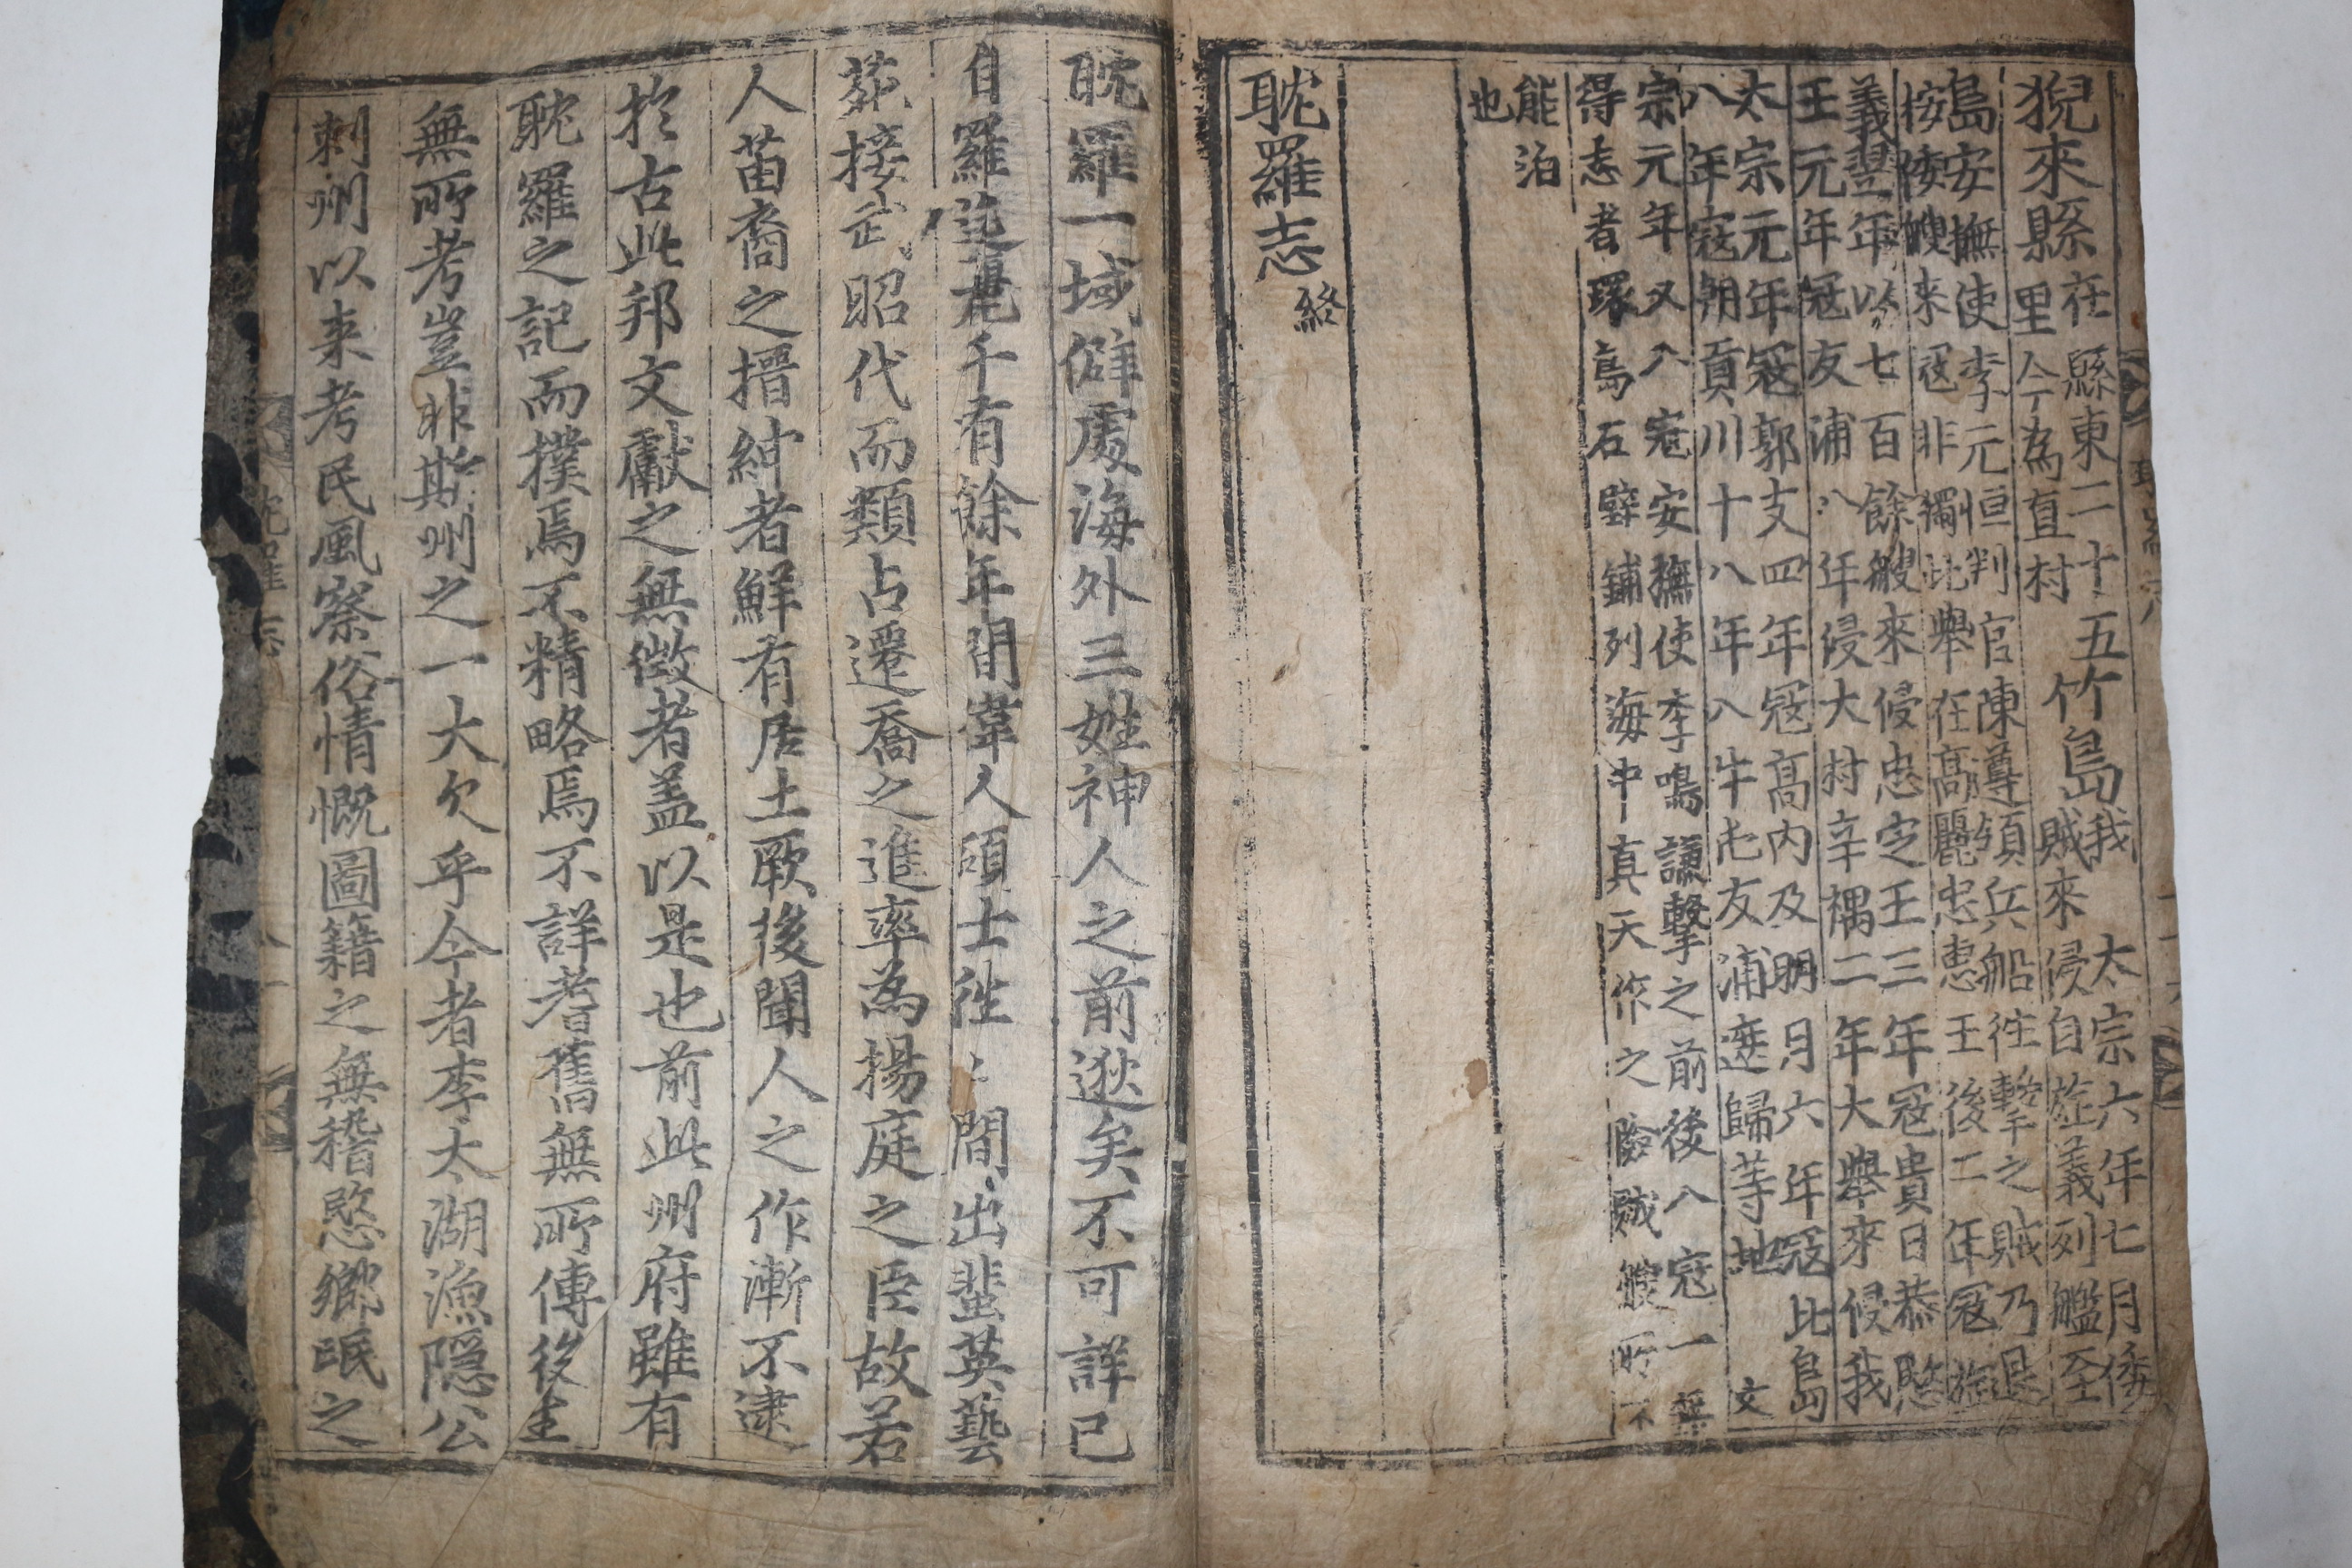 猊來縣
在縣東二十五
里今為直村
竹島
我太宗六年七月倭
賊來侵自旌義列艦至
島安撫使李元恒判官陳遵領兵船往擊之賊乃退
按倭艘來冦非獨此舉在高麗忠惠王後二年冦旌
義翌年以七百餘艘來侵忠定王三年冦貴日恭愍
王元年冦友浦八年侵大村辛禑二年大舉來侵我
太宗元年冦郭支四年冦高內及明月六年冦比島
八年冦朝貢川十八年八牛屯友浦遮歸等地文
宗元年又入冦安撫使李鳴謙擊之前後八冦一無
得志者環島石壁鋪列海中真天作之險賊艘所不
能泊
也
耽羅志
終
耽羅一域僻處海外三姓神人之前逖矣不可詳已
自羅迄麗千有餘年間韋人碩士徃〻間出蜚英藝
苑接武昭代而類占遷喬之進率為揚庭之臣故若
人苗裔之搢紳者鮮有居土厥後聞人之作漸不逮
於古此邦文獻之無徵者盖以是也前此州府雖有
耽羅之記而撲焉不精略焉不詳耆舊無所傳後生
無所考豈非斯州之一大欠乎今者李太湖漁隱公
刺州以来考民風察俗情慨圖籍之無稽愍鄉氓之